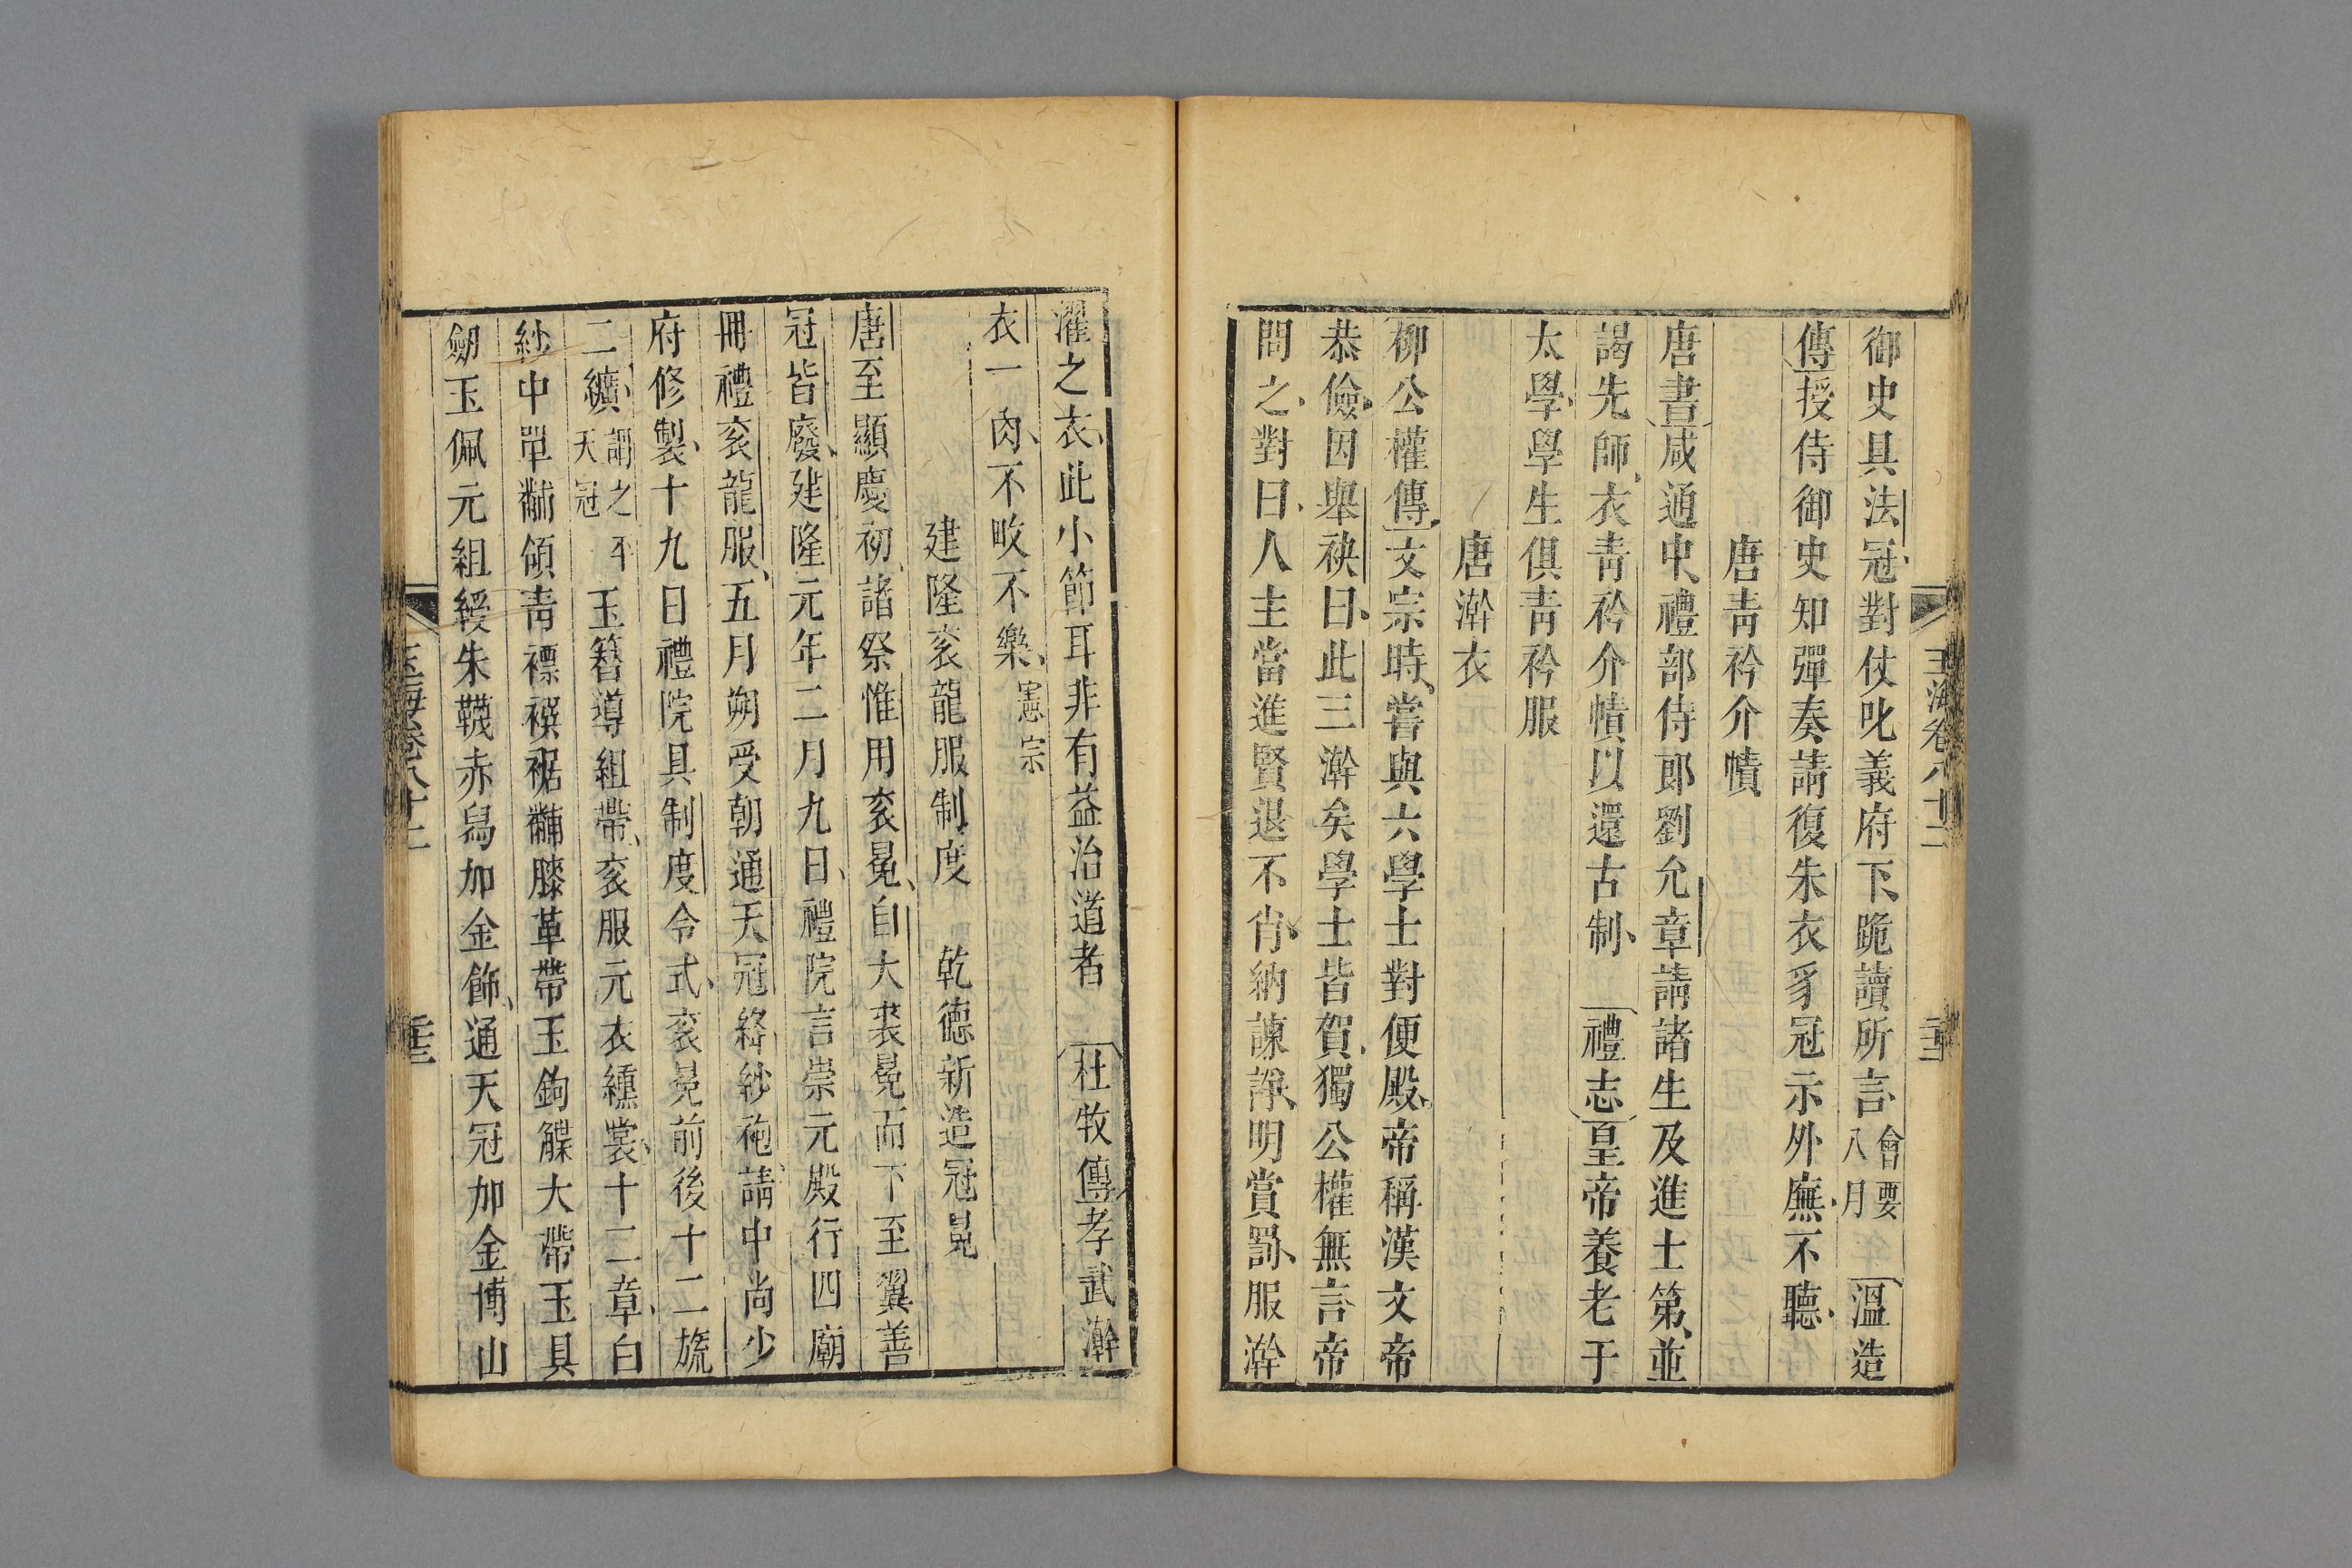 玉海卷八十二
御史具法冠對仗叱義府下跪讀所言會要八月溫造
傳授侍御史知彈奏請復朱衣豸冠示外廡不聽
唐青衿介幘
唐書咸通中禮部侍郎劉允章請諸生及進士第並
謁先師衣青衿介幘以還古制　禮志皇帝養老于
太學學生俱青衿服
唐澣衣
柳公權傳文宗時嘗與六學士對便殿帝稱漢文帝
恭儉因舉袂曰此三澣矣學士皆賀獨公權無言帝
問之對曰人主當進賢退不肖納諫諍明賞罰服澣
濯之衣此小節耳非有益治道者　杜牧傳孝武澣
衣一肉不畋不樂憲宗
建隆袞龍服制度　乾德新造冠冕
唐至顯慶初諸祭惟用袞冕自大裘冕而下至翼善
冠皆廢建隆元年二月九日禮院言崇元殿行四廟
冊禮袞龍服五月朔受朝通天冠絳紗袍請中尚少
府修製十九日禮院具制度令式袞冕前後十二旒
二纊謂之平天冠玉簪導組帶袞服元衣纁裳十二章白
紗中單黼領青褾襈裾黼膝革帶玉鉤䚢大帶玉具
劒玉佩元組綬朱韈赤舄加金飾通天冠加金博山
玉海卷八十二